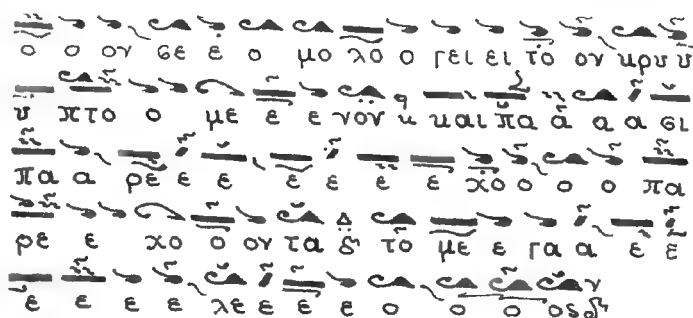 ο ο ον σε ε ο μο λο ο γει ει το ον κρυ υ
υ πτο ο με ε ε νον κ και πα α α α σι
πα α ρε ε ε ε ε ε ε χο ο ο ο πα
ρε ε χο ο ον τα δ το με ε γα α ε ε
ε ε ε ε λε ε ε ε ο ο ο ου δ